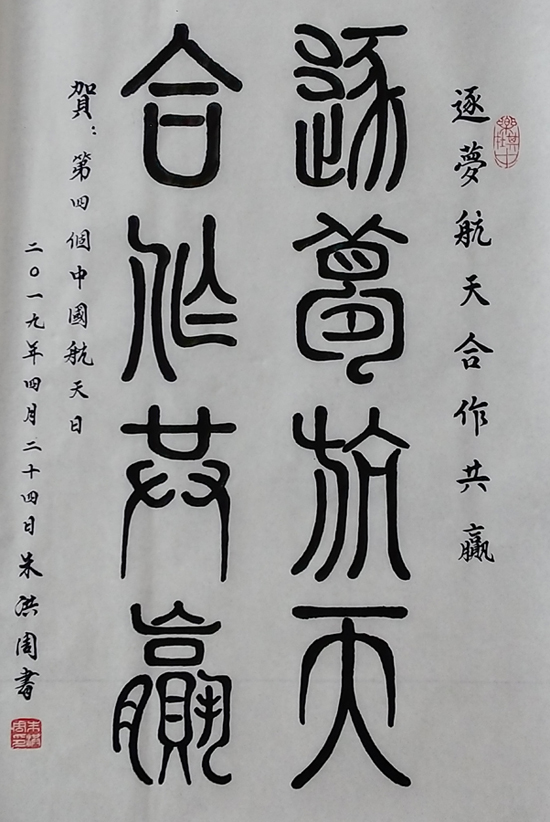 逐夢航天合作共贏
逐夢航天
合作共贏
賀：第四個中國航天日
二〇一九年四月二十四日朱洪周書